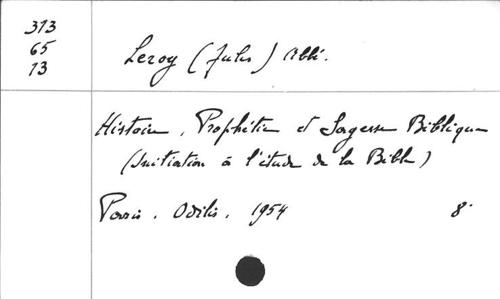 313
65
13
Leroy (Jules) Abbé.
Histoire, Prophétie et Sagesse Biblique
(Initiation à l'étude de la Bible)
Paris. Odilis. 1954 8°